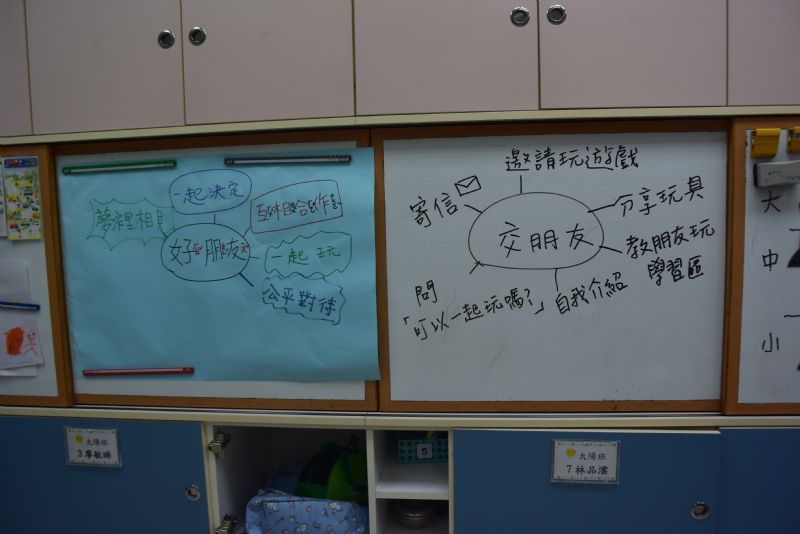 一起決定
夢裡相見
好朋友
一起玩
公平對待
邀請玩遊戲
寄信
分享玩具
交朋友
教朋友玩
學習區
問
「可以一起玩嗎?」
自我介紹
大
中
小
太陽班
3
5
太陽班
7 林品澐